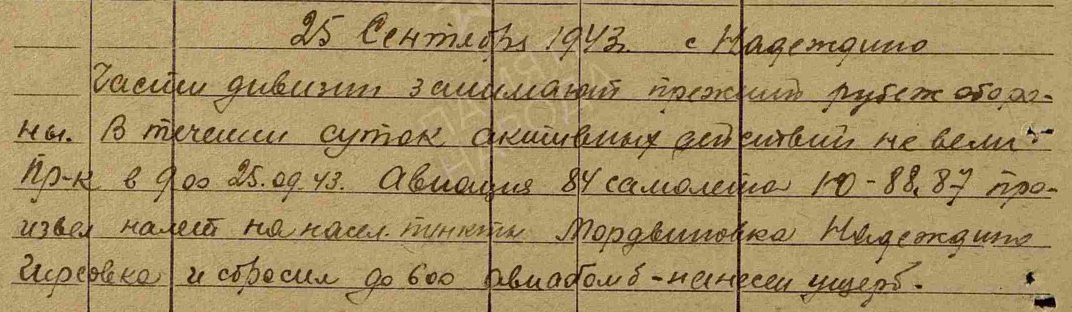 25 Сентября 1943г. с Надеждино
Части дивизии занимают прежний рубеж оборо-
ны. В течении суток активных действий не вели
Пр-к в 9 00 25.09.43. Авиация 84 самолета Ю-88, 87 про-
извел налет на насел. пункты Мордвиновка Надеждино
Гирсовка и сбросил до 600 авиабомб - нанесен ущерб.